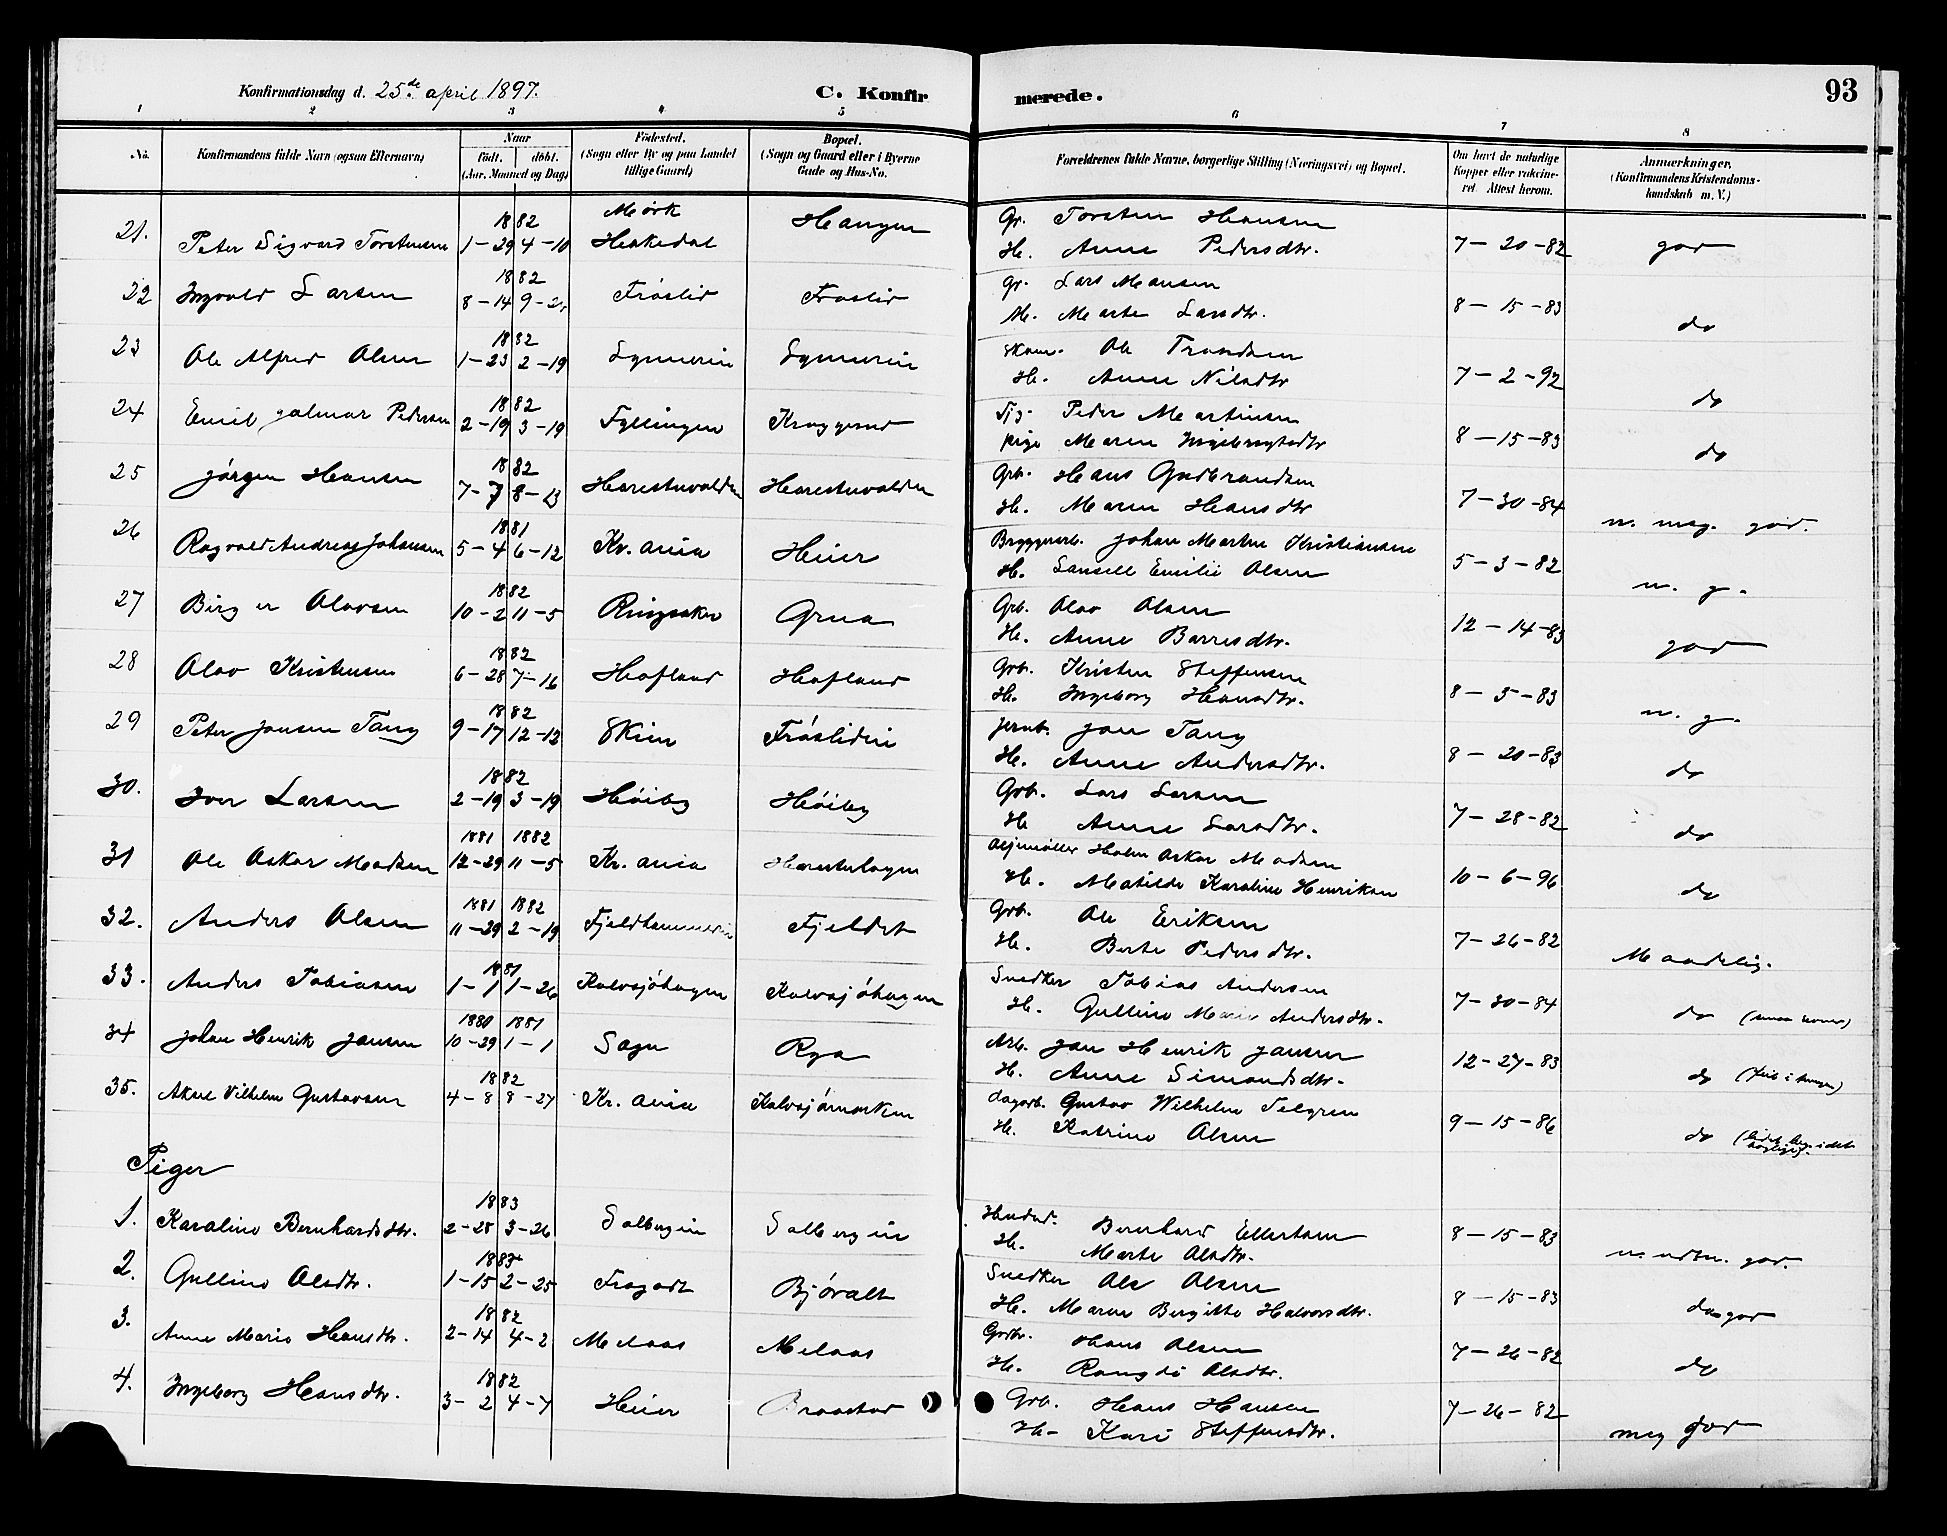 Konfirmationsdag d. 25de april 1897.
C. Konfirmerede.
93
1 2 3 4 5 6 7 8
No. Konfirmandens fulde Navn (ogsaa Efternavn) Naar født. døbt. (Aar, Maaned og Dag) Fødested. (Sogn eller By og paa Landet tillige Gaard) Bopæl. (Sogn og Gaard eller i Byerne Gade og Hus-No. Forældrenes fulde Navne, borgerlige Stilling (Næringsvei) og Bopæl. Om havt de naturlige Kopper eller vaksineret. Attest herom. Anmærkninger. (Konfirmandens Kristendomskundskab m. V.)
21. Peter Sigvard Torstensen 1882 1-29 4-10 Mørk Hakedal Haugen Gr. Torsten Hansen 7-20-82 god
H. Anne Pedersdtr.
22 Ingvald Larsen 1882 8-14 9- Frøslid Frøslid Gr. Lars Hansen 8-15-83 do
H. Marte Larsdtr.
23 Ole Alfred Olsen 1882 1-23 2-19 Lynnerin Lynnerin Skom. Ole Trondsen 7-2-92 do
H. Anne Nilsdtr
24 Emil Hjalmar Pedersen 1882 2-19 3-19 Fyllingen Kraggerud Tjg. Peder Martinsen 8-15-83 do
pige Maren Ingebregtsdtr
25 Jørgen Hansen 1882 7-7 8-13 Harestuvolden Harestuvolden Grb. Hans Gudbrandsen 7-30-84 n. meg. god.
H. Maren Hansdtr
26 Ragvald Andreas Johansen 1881 5-4 6-12 Kr.ania Heier Bryggerarb. Johan Martin Kristiansen 5-3-82 n. g.
H. Emilie Olsen
27 Birger Olavsen 1882 10-2 11-5 Ringsaker Grua Grb. Olav Olsen 12-14-83 god
H. Anne Barresdtr.
28 Olav Kristensen 1882 6-28 7-16 Hofland Hofland Grb. Kristen Steffensen 8-5-83 n. g.
H. Ingeborg Hansdtr.
29 Peter Jansen Tang 1882 9-17 12-12 Skien Frøslidin Jernb. Jan Tang 8-20-83 do
H. Anne Andersdtr.
30. Iver Larsen 1882 2-19 3-19 Høiby Høiby Grb. Lars Larsen 7-28-82 do
H Anne Larsdtr.
31 Ole Oskar Madsen 1881 1882 12-29 11-5 Kr.ania Harestuhagen Oljemøller Holm Oskar Madsen 10-6-96 do
H. Matilde Karoline Henriksen
32. Anders Olsen 1881 1882 11-29 2-19 Fjeldhammerin Fjeldet Grb. Ole Eriksen 7-26-82 Maadelig.
H. Berte Pedersdtr.
33. Anders Tobiasen 1881 1-1 1-26 Kalvsjøhagen Kalvsjøhagen Snedker Tobias Andersen 7-30-84 do
H. Gulline Marie Andersdtr.
34 Johan Henrik Jansen 1880 1881 10-29 1-1 Sogn Rya Arb. Jan Henrik Jansen 12-27-83 do
H. Anne Simonsdtr.
35. Aksel Vilhelm Gustavsen 1882 4-8 8-27 Kr.ania Kalvsjømarken dagarb. Gustav Wilhelm Telgren 9-15-86 do
H. Katrine Olsen
Piger
1. Karoline Bernhardsdtr. 1883 2-25 3-26 Solbergin Solbergin Husbd. Bernhard Ellertsen 8-15-83 n. udm. god.
H. Marte Olsdtr.
2. Gulline Olsdtr. 1883 1-15 2-25 Frogodt Bjøralt Snedker Ole Olsen 8-15-83 god
H. Maren Bergitte Halvorsdtr.
3. Anne Marie Hansdtr. 1882 2-14 4-2 Melaas Melaas Grb. Hans Olsen 7-26-82 do
H. Rangdi Olsdtr.
4. Ingeborg Hansdtr. 1882 3-2 4-7 Heier Braastad Grb. Hans Hansen 7-26-82 meg god
H- Kari Steffensdtr.